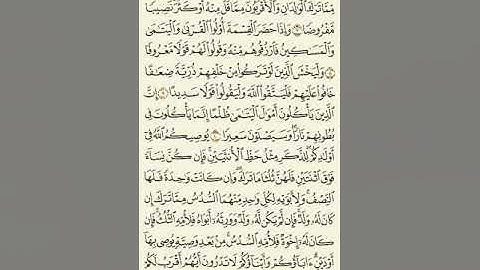 مِّمَّا تَرَكَ ٱلْوَٰلِدَانِ وَٱلْأَقْرَبُونَ مِمَّا قَلَّ مِنْهُ أَوْ كَثُرَ نَصِيبًا
مَّفْرُوضًا ٧ وَإِذَا حَضَرَ ٱلْقِسْمَةَ أُو۟لُوا۟ ٱلْقُرْبَىٰ وَٱلْيَتَٰمَىٰ
وَٱلْمَسَٰكِينُ فَٱرْزُقُوهُم مِّنْهُ وَقُولُوا۟ لَهُمْ قَوْلًا مَّعْرُوفًا
٨ وَلْيَخْشَ ٱلَّذِينَ لَوْ تَرَكُوا۟ مِنْ خَلْفِهِمْ ذُرِّيَّةً ضِعَٰفًا
خَافُوا۟ عَلَيْهِمْ فَلْيَتَّقُوا۟ ٱللَّهَ وَلْيَقُولُوا۟ قَوْلًا سَدِيدًا ٩ إِنَّ
ٱلَّذِينَ يَأْكُلُونَ أَمْوَٰلَ ٱلْيَتَٰمَىٰ ظُلْمًا إِنَّمَا يَأْكُلُونَ فِى
بُطُونِهِمْ نَارًا وَسَيَصْلَوْنَ سَعِيرًا ١٠ يُوصِيكُمُ ٱللَّهُ فِىٓ
أَوْلَٰدِكُمْ لِلذَّكَرِ مِثْلُ حَظِّ ٱلْأُنثَيَيْنِ فَإِن كُنَّ نِسَآءً
فَوْقَ ٱثْنَتَيْنِ فَلَهُنَّ ثُلُثَا مَا تَرَكَ وَإِن كَانَتْ وَٰحِدَةً فَلَهَا
ٱلنِّصْفُ وَلِأَبَوَيْهِ لِكُلِّ وَٰحِدٍ مِّنْهُمَا ٱلسُّدُسُ مِمَّا تَرَكَ إِن
كَانَ لَهُۥ وَلَدٌ فَإِن لَّمْ يَكُن لَّهُۥ وَلَدٌ وَوَرِثَهُۥٓ أَبَوَاهُ فَلِأُمِّهِ ٱلثُّلُثُ فَإِن
كَانَ لَهُۥٓ إِخْوَةٌ فَلِأُمِّهِ ٱلسُّدُسُ مِنۢ بَعْدِ وَصِيَّةٍ يُوصِى بِهَآ
أَوْ دَيْنٍ ءَابَآؤُكُمْ وَأَبْنَآؤُكُمْ لَا تَدْرُونَ أَيُّهُمْ أَقْرَبُ لَكُمْ